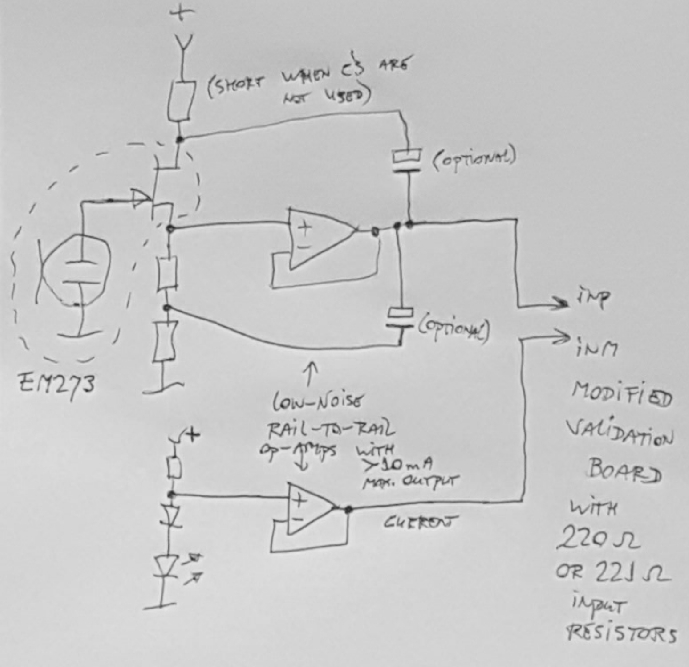 +
(SHORT WHEN C'S ARE
NOT USED)
(OPTIONAL)
+
−
INP
(OPTIONAL)
INM
EM273
LOW-NOISE
RAIL-TO-RAIL
OP-AMPS WITH
>10mA
MAX. OUTPUT
CURRENT
+
+
−
MODIFIED
VALIDATION
BOARD
WITH
220 Ω
OR 221 Ω
INPUT
RESISTORS